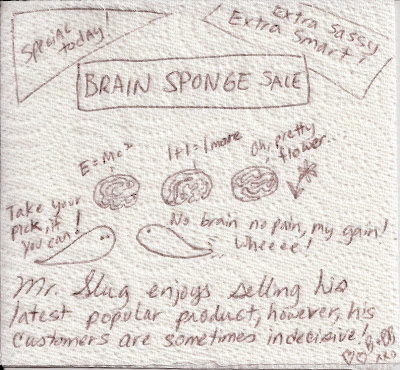 SPECIAL
today!
Extra Sassy
Extra Smart!
BRAIN SPONGE SALE
E=Mc²
1+1=1more
Oh, pretty
flower...
Take your
pick, if
you can!
No brain no pain, my gain!
Wheeee!
Mr. Slug enjoys selling his
latest popular product, however, his
customers are sometimes indecisive!